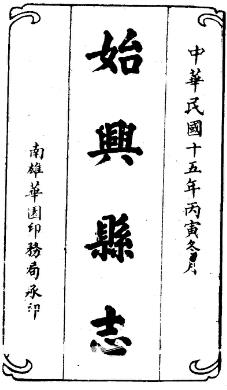 中華民國十五年丙寅冬月
始興縣志
南雄華國印務局承印